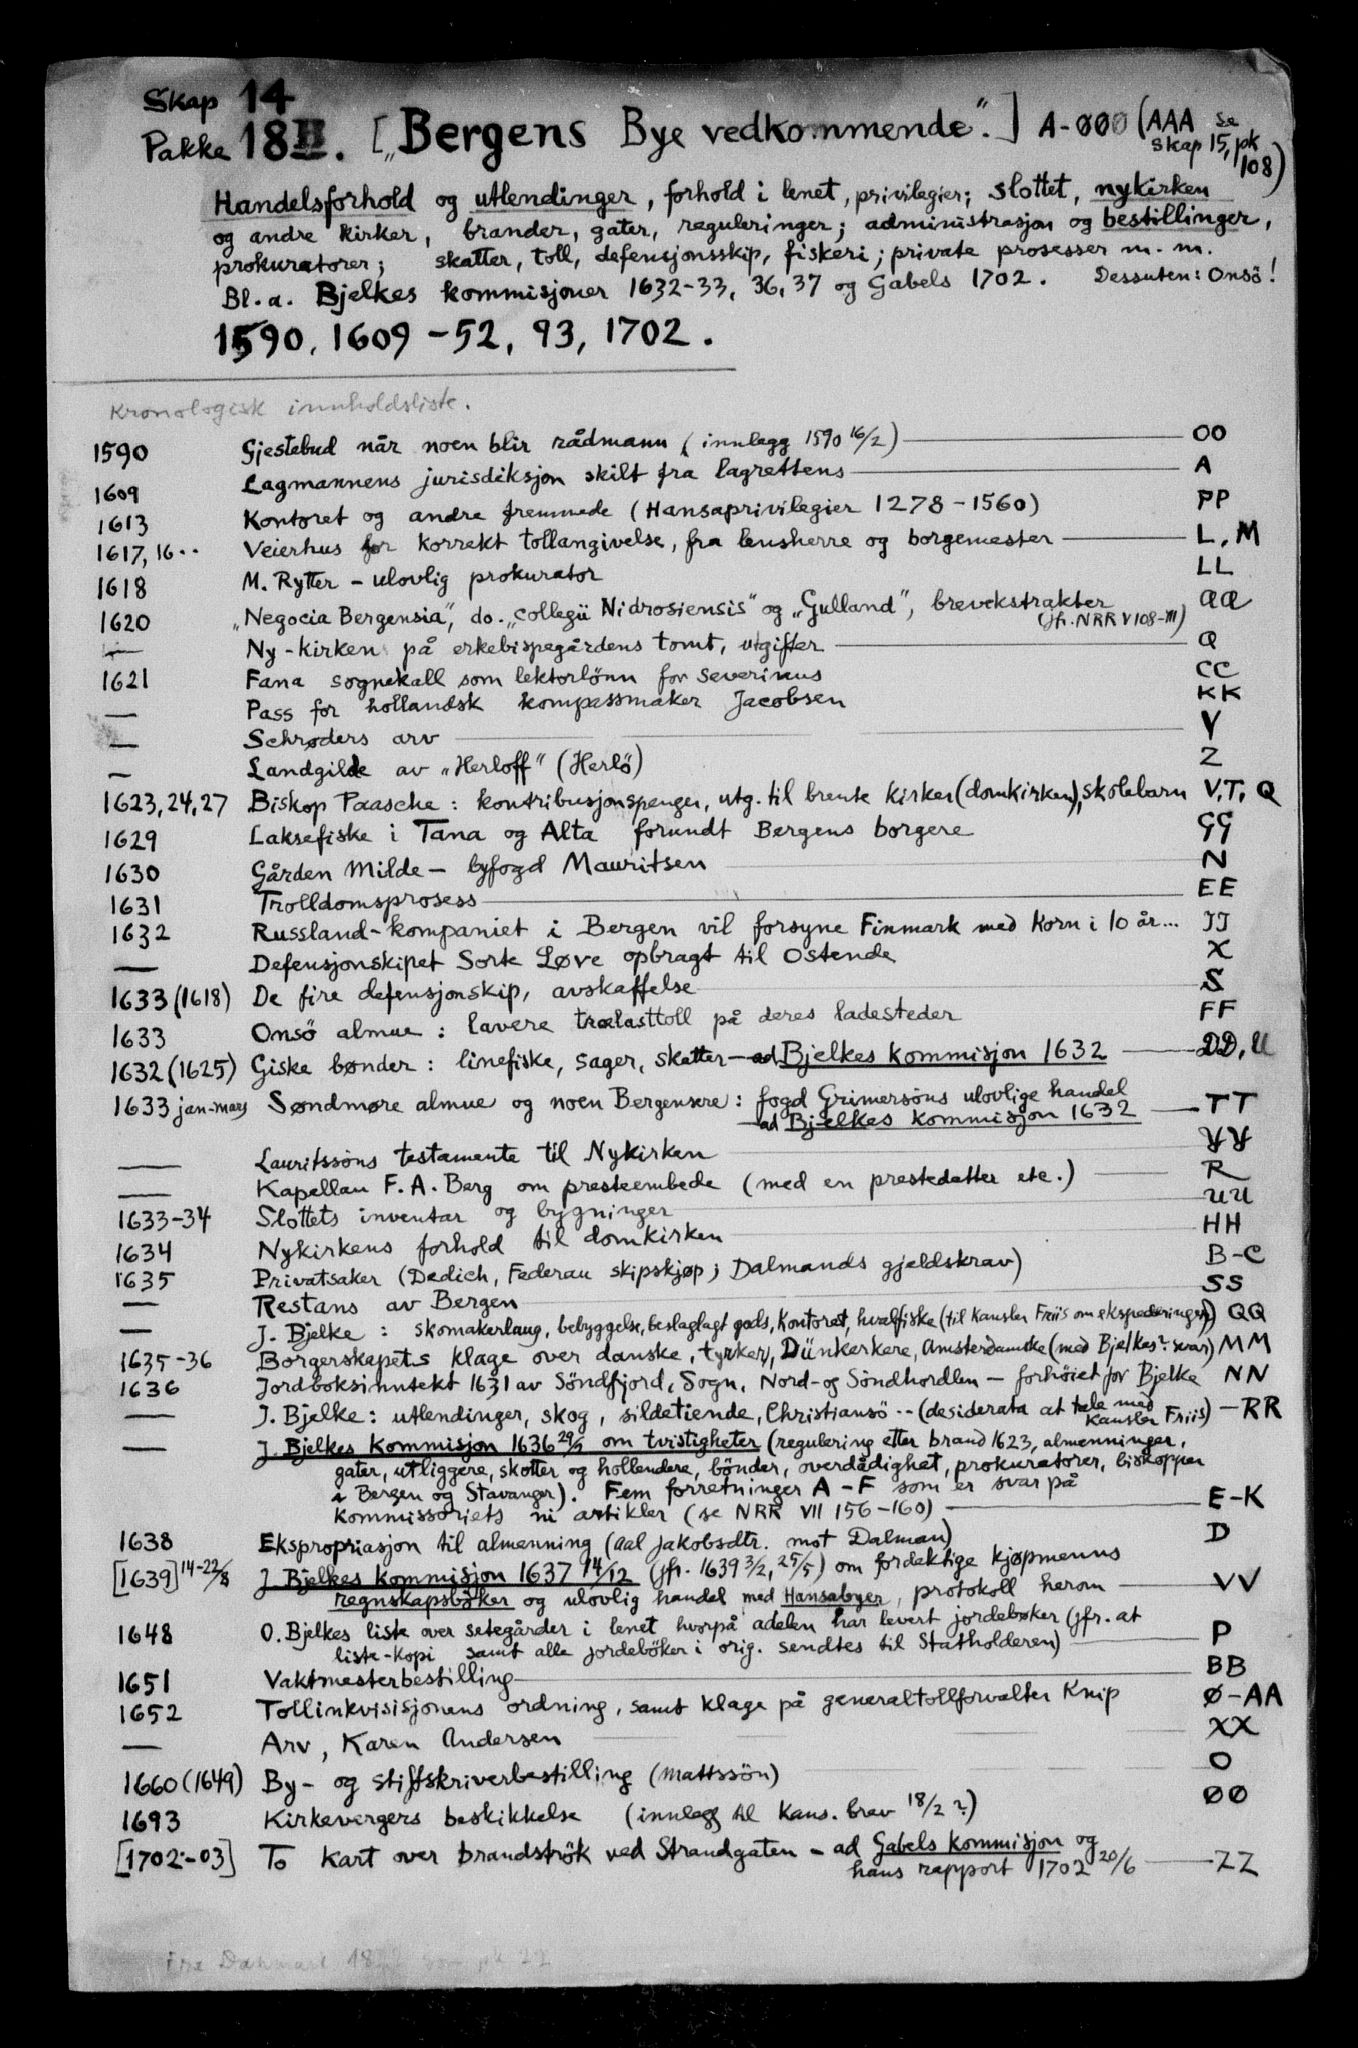 Skap 14
Pakke 18 II. [„Bergens Bye vedkommende".] A-ØØØ (AAA se skap 15, pk 108)
Handelsforhold og utlendinger, forhold i lenet, privilegier; slottet, nykirken
og andre kirker, brander, gater, reguleringer; administrasjon og bestillinger,
prokuratorer; skatter, toll, defensjonsskip, fiskeri; private prosesser m. m.
Bl. a. Bjelkes kommisjoner 1632-33, 36, 37 og Gabels 1702. Dessuten: Onsö!
1590, 1609-52, 93, 1702.
Kronologisk innholdsliste.
1590 Gjestebud når noen blir rådmann (innlegg 1590 16/2) — OO
1609 Lagmannens jurisdiksjon skilt fra lagrettens — A
1613 Kontoret og andre fremmede (Hansaprivilegier 1278-1560) PP
1617, 16.. Veierhus for korrekt tollangivelse, fra lensherre og borgemester — L, M
1618 M. Rytter - ulovlig prokurator LL
1620 „Negocia Bergensia", do. „collegii Nidrosiensis" og „Gulland", brevekstrakter (jfr. NRR V 108-111) aa
— Ny-kirken på erkebispegårdens tomt, utgifter — Q
1621 Fana sognekall som lektorlönn for Severinus CC
— Pass for hollandsk kompassmaker Jacobsen KK
— Schrøders arv — Y
— Landgilde av „Herloff" (Herlö) Z
1623, 24, 27 Biskop Paasche: kontribusjonspenger, utg. til brente kirker (domkirken), skolebarn V, T, Q
1629 Laksefiske i Tana og Alta forundt Bergens borgere GG
1630 Gården Milde - byfogd Mauritsen — N
1631 Trolldomsprosess — EE
1632 Russland-kompaniet i Bergen vil forsyne Finmark med korn i 10 år... JJ
— Defensjonskipet Sorte Løve opbragt til Ostende X
1633 (1618) De fire defensjonskip, avskaffelse — S
1633 Onsö almue: lavere trælasttoll på deres ladesteder FF
1632 (1625) Giske bønder: linefiske, sager, skatter - ad Bjelkes kommisjon 1632 — DD, U
1633 jan-mars Søndmøre almue og noen Bergensere: fogd Grimersöns ulovlige handel
— ad Bjelkes kommisjon 1632 — TT
— Lauritssöns testamente til Nykirken — YY
— Kapellan F. A. Berg om presteembede (med en prestedatter etc.) — R
1633-34 Slottets inventar og bygninger — UU
1634 Nykirkens forhold til domkirken — HH
1635 Privatsaker (Dedich, Federau skipskjøp; Dalmands gjeldskrav) B-C
— Restans av Bergen — SS
— J. Bjelke: skomakerlaug, bebyggelse, beslaglagt gods, kontoret, hvalfiske (til kansler Friis om ekspederinger) QQ
1635-36 Borgerskapets klage over danske, tyrker, Dünkerkere, Amsterdamske (med Bjelkes? svar) MM
1636 Jordboksinntekt 1631 av Söndfjord, Sogn, Nord- og Söndhordlen - forhöiet for Bjelke NN
— J. Bjelke: utlendinger, skog, sildetiende, Christiansö .. (desiderata at tale med kansler Friis) — RR
— J. Bjelkes kommisjon 1636 29/5 om tvistigheter (regulering etter brand 1623, almenninger,
gater, utliggere, skotter og hollendere, bönder, overdådighet, prokuratorer, biskopper
i Bergen og Stavanger). Fem forretninger A-F som er svar på
kommissoriets ni artikler (se NRR VII 156-160) — E-K
1638 Ekspropriasjon til almenning (Aal Jakobsdtr. mot Dalman) D
[1639] 14-22/8 J. Bjelkes kommisjon 1637 14/12 (jfr. 1639 3/2, 25/5) om fordektige kjøpmenns
regnskapsböker og ulovlig handel med Hansabyer, protokoll herom — VV
1648 O. Bjelkes liste over setegårder i lenet hvorpå adelen har levert jordebøker (jfr. at
liste-kopi samt alle jordeböker i orig. sendtes til Statholderen) — P
1651 Vaktmesterbestilling — BB
1652 Tollinkvisisjonens ordning, samt klage på generaltollforvalter Knip Ø-AA
— Arv, Karen Andersen — XX
1660 (1649) By- og stiftskriverbestilling (Mattssön) — O
1693 Kirkevergers beskikkelse (innlegg til kans. brev 18/2 ?) ØØ
[1702-03] To kart over brandströk ved Strandgaten - ad Gabels kommisjon og
hans rapport 1702 20/6 — ZZ